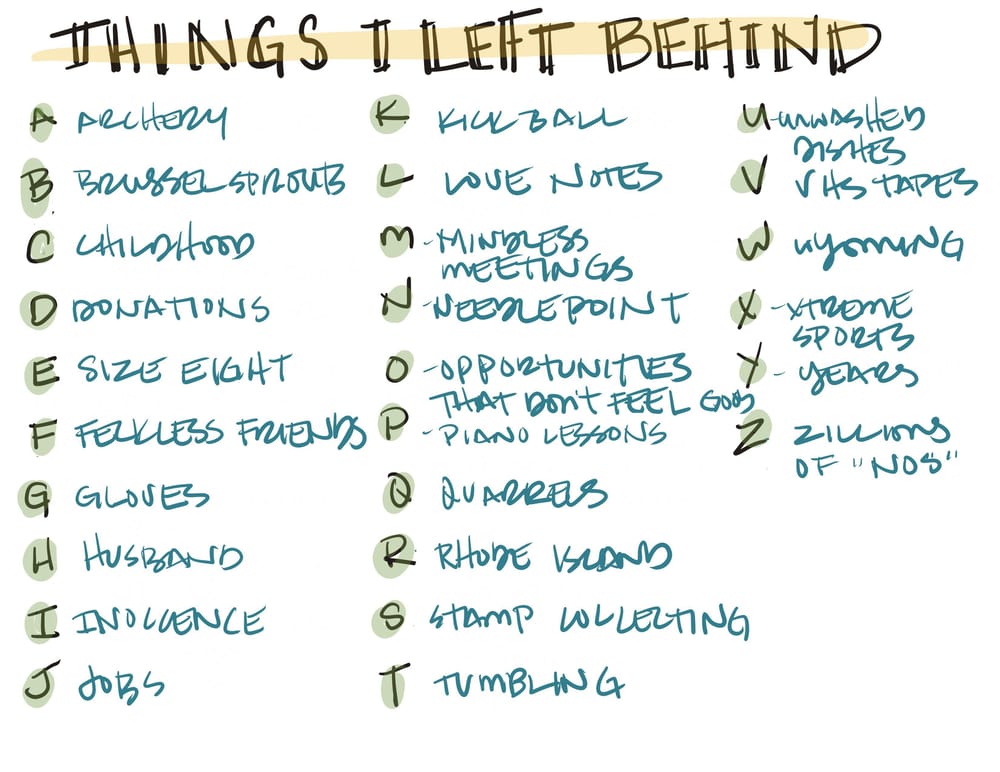 THINGS I LEFT BEHIND
A ARCHERY
B BRUSSEL SPROUTS
C CHILDHOOD
D DONATIONS
E SIZE EIGHT
F FECKLESS FRIENDS
G GLOVES
H HUSBAND
I INOCCENCE
J JOBS
K KICKBALL
L LOVE NOTES
M - MINDLESS
MEETINGS
N - NEEDLEPOINT
O - OPPORTUNITIES
THAT DON'T FEEL GOOD
P - PIANO LESSONS
Q QUARRELS
R RHODE ISLAND
S STAMP COLLECTING
T TUMBLING
U - UNWASHED
DISHES
V VHS TAPES
W WYOMING
X - XTREME
SPORTS
Y - YEARS
Z ZILLIONS
OF "NOS"